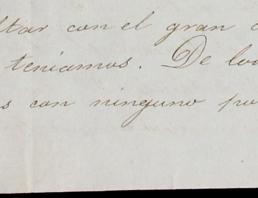 ltar con el gran
teníamos. De lo
s con ninguno po